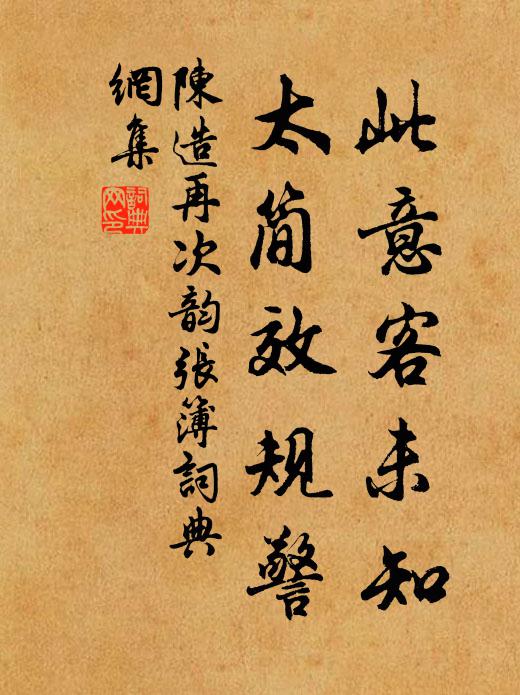 此意客未知
太简效规警
陳造再次韵張簿詞典
網集
詞典网印